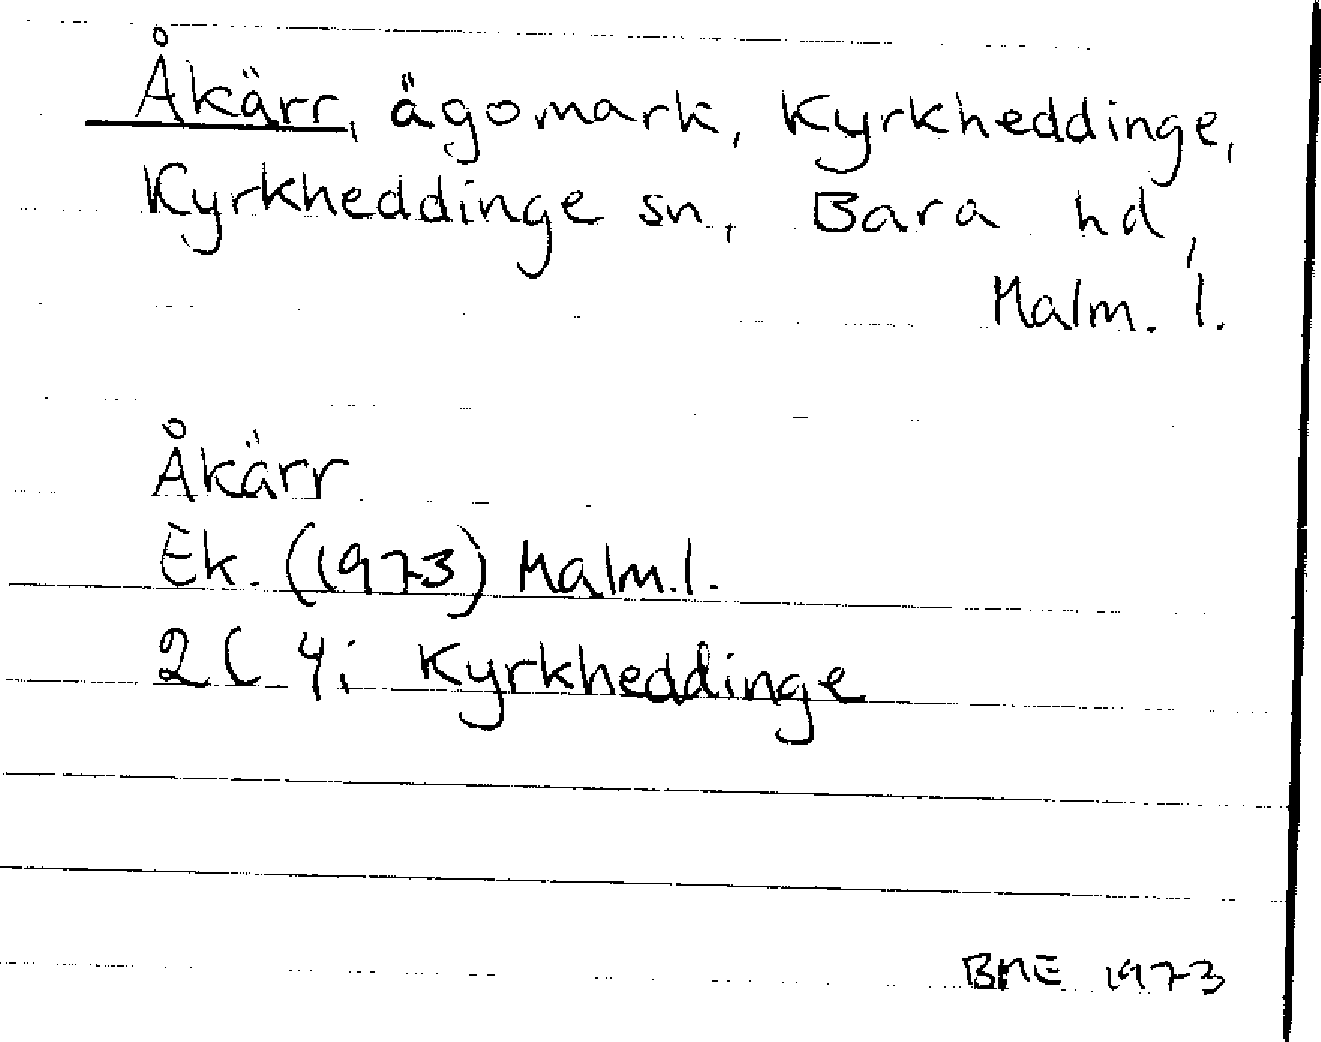 Åkärr, ägomark, Kyrkheddinge,
Kyrkheddinge sn, Bara hd,
Malm. l.
Åkärr
Ek. (1973) Malm. l.
2C 4i Kyrkheddinge
BME 1973